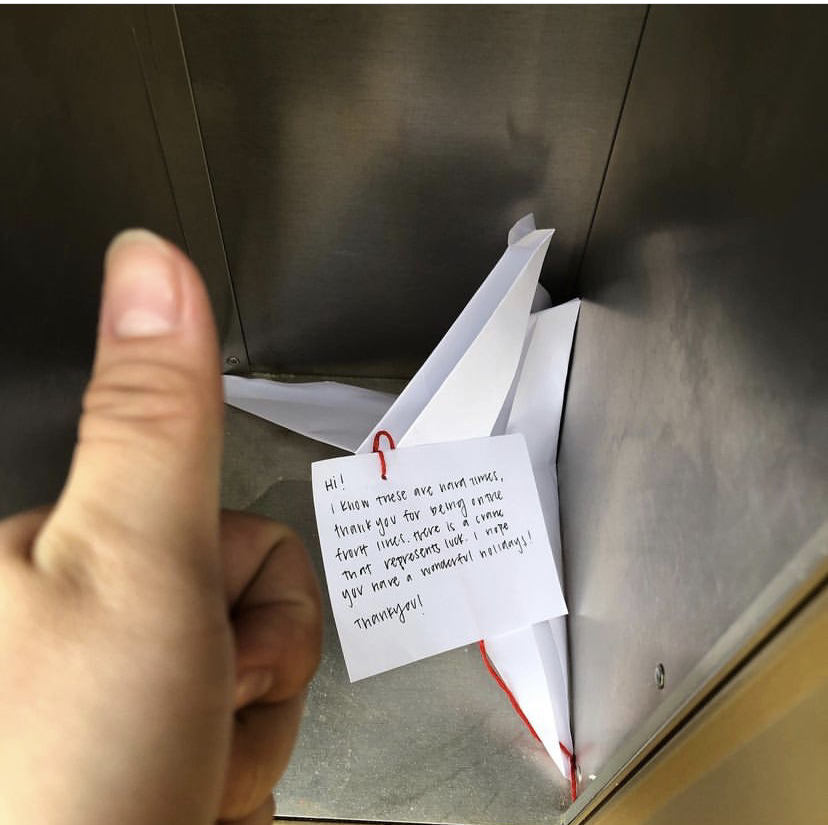 Hi!
I know these are hard times,
thank you for being on the
front lines. there is a crane
that represents luck. I hope
you have a wonderful holidays!
Thankyou!